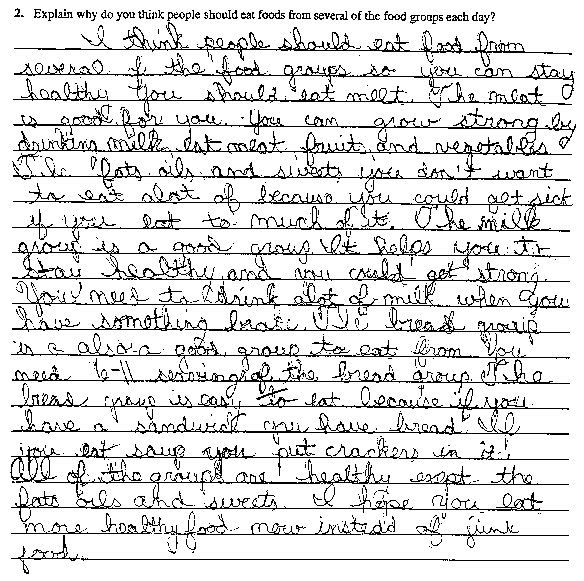 2. Explain why do you think people should eat foods from several of the food groups each day?
I think people should eat food from
several of the food groups so you can stay
healthy you should eat meet. The meat
is good for you. You can grow strong by
drinking milk eat meat fruit, and vegetables
The fats oils, and sweets you don't want
to eat alot of because you could get sick
if you eat to much of it. The milk
group is a good group. It helps you to
stay healthy and you could get strong.
You need to drink alot of milk when you
have something brake. The bread group
is a also a good group to eat from You
need 6-11 servings of the bread group. The
bread group is easy to eat because if you
have a sandwich you have bread. If
you eat soup you put crackers in it!
All of the groups are healthy exept the
fats oils and sweets. I hope you eat
more healthy food now instead of junk
food.